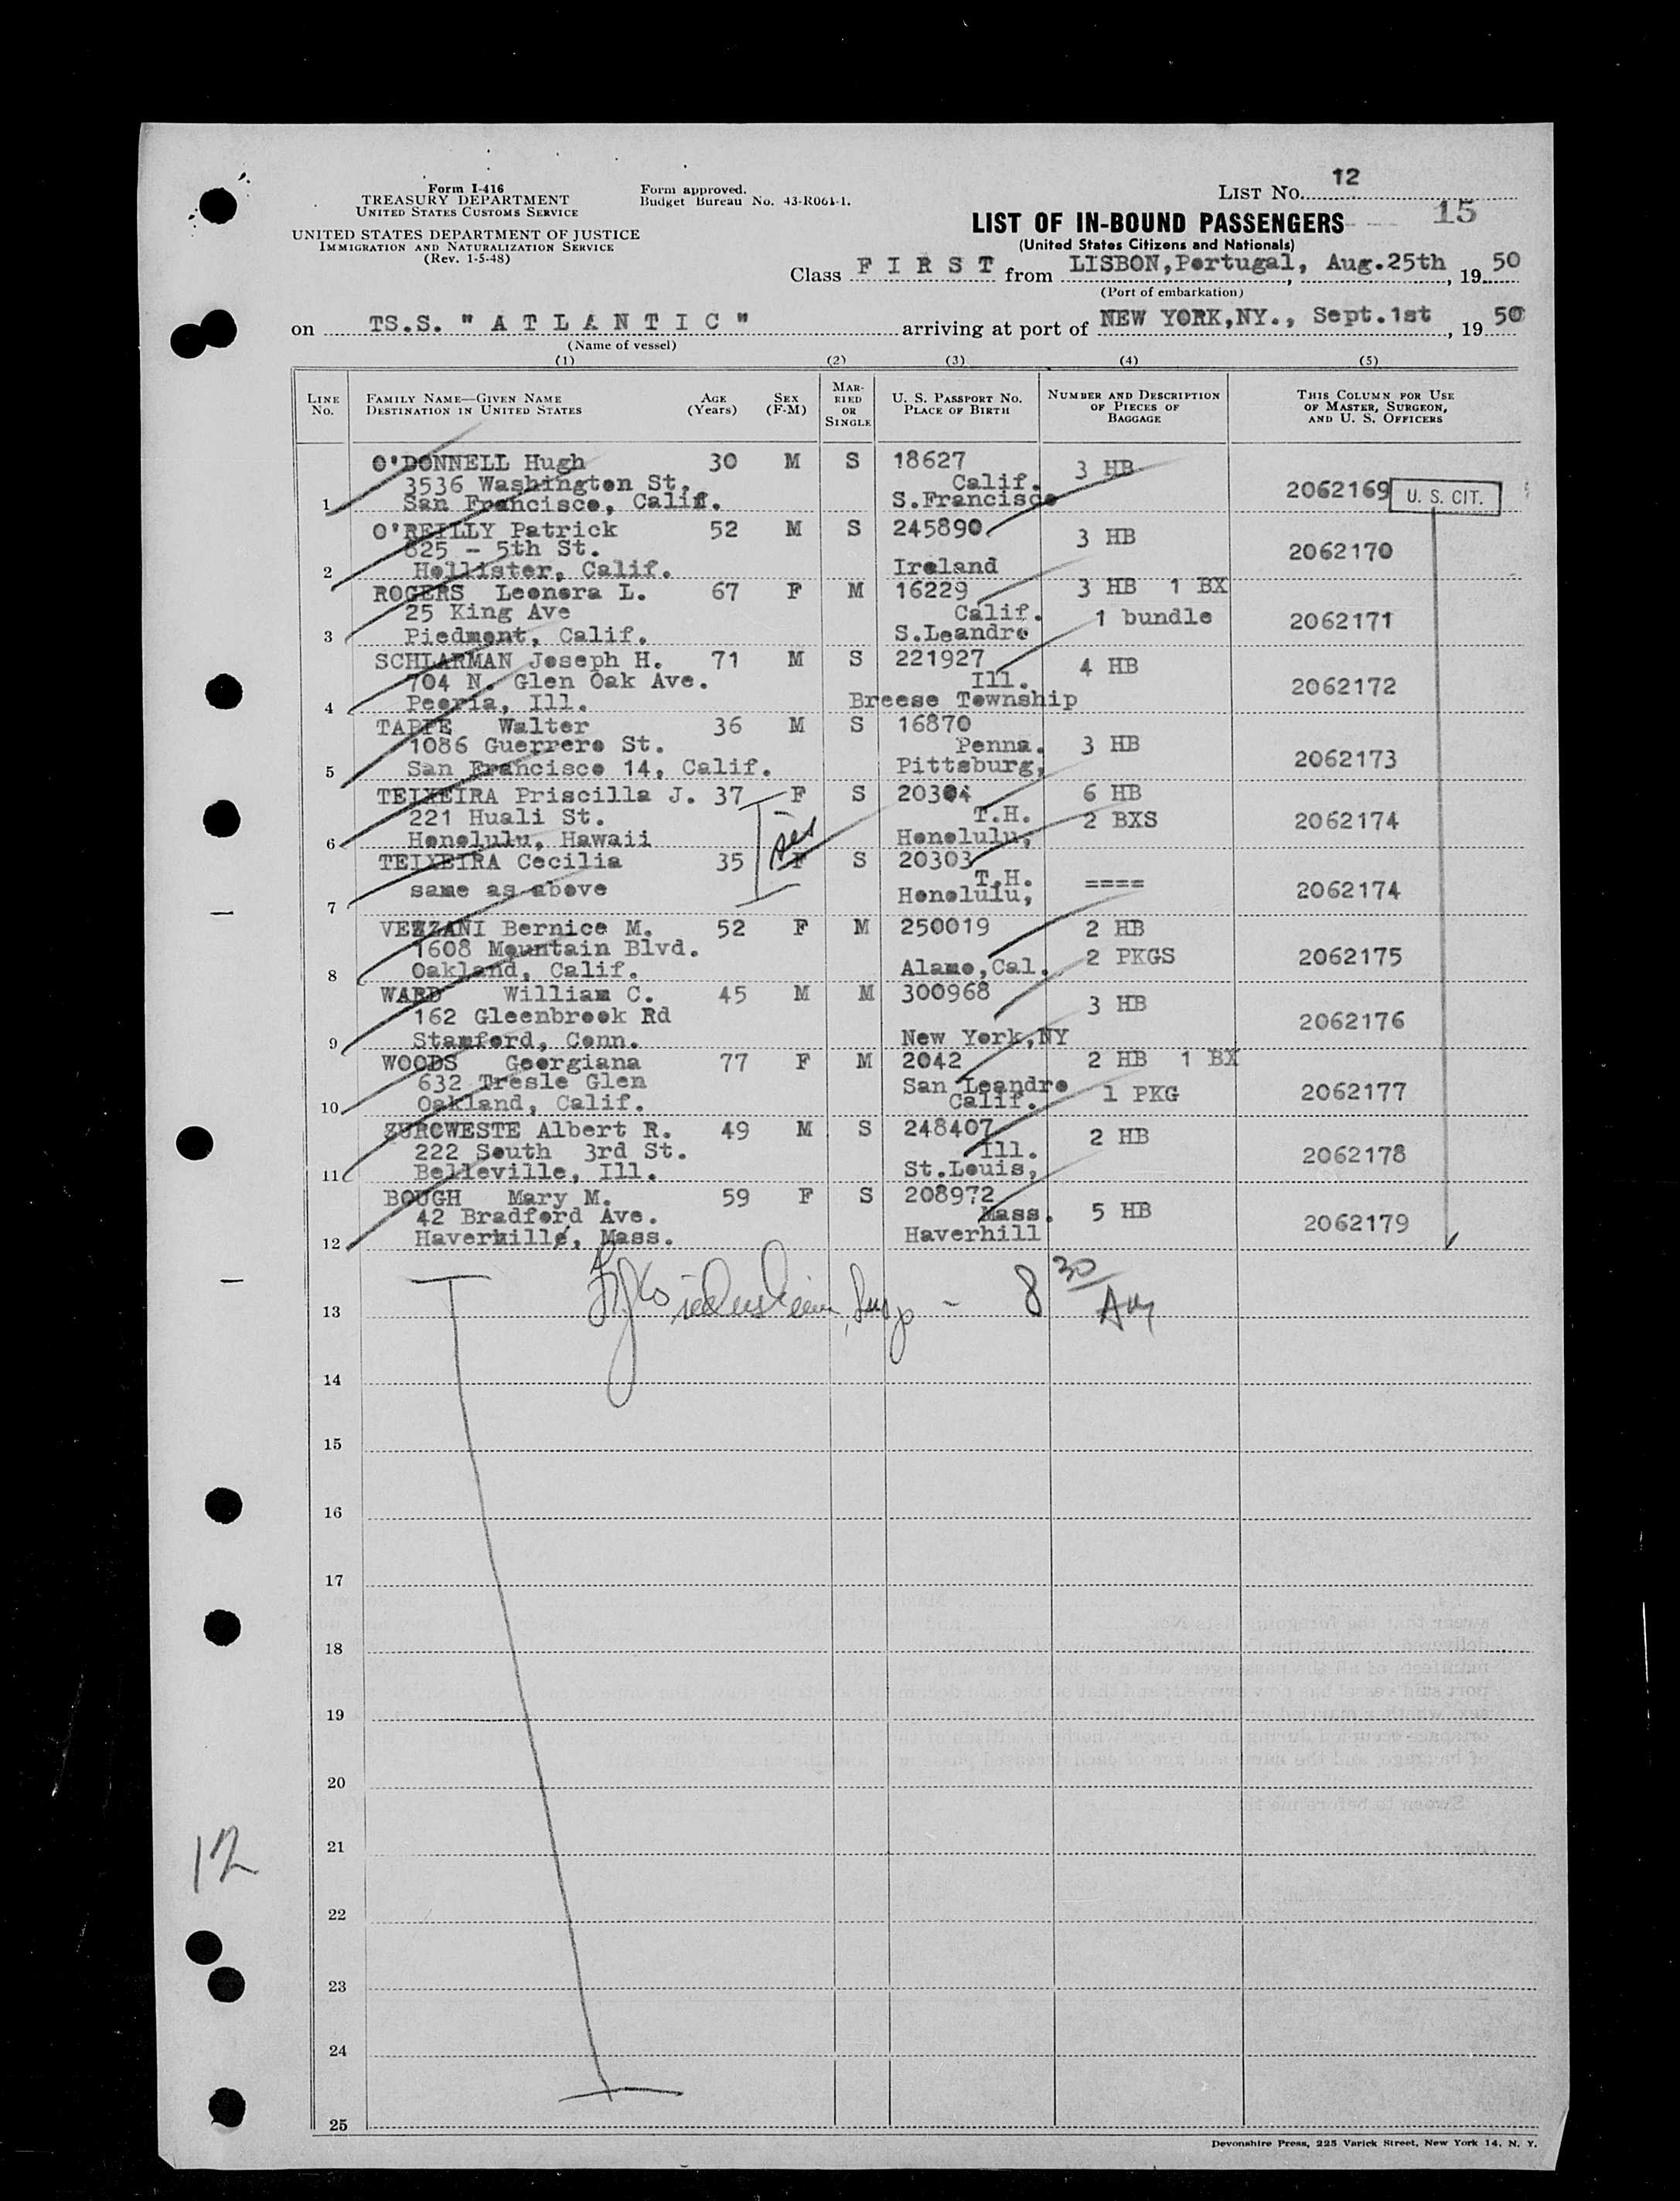 Form I-416
TREASURY DEPARTMENT
UNITED STATES CUSTOMS SERVICE
UNITED STATES DEPARTMENT OF JUSTICE
IMMIGRATION AND NATURALIZATION SERVICE
(Rev. 1-5-48)
Form approved.
Budget Bureau No. 43-R061-1.
LIST NO. 12
LIST OF IN-BOUND PASSENGERS 15
(United States Citizens and Nationals)
Class F I R S T from LISBON,Portugal, Aug.25th, 1950
(Port of embarkation)
on TS.S. " A T L A N T I C " arriving at port of NEW YORK,NY., Sept.1st, 1950
(Name of vessel)
(1) (2) (3) (4) (5)
LINE No. FAMILY NAME—GIVEN NAME DESTINATION IN UNITED STATES AGE (Years) SEX (F-M) MARRIED OR SINGLE U. S. PASSPORT NO. PLACE OF BIRTH NUMBER AND DESCRIPTION OF PIECES OF BAGGAGE THIS COLUMN FOR USE OF MASTER, SURGEON, AND U. S. OFFICERS
O'DONNELL Hugh 30 M S 18627 3 HB
3536 Washington St. Calif. 2062169 U. S. CIT.
1 San Francisco, Calif. S.Francisco
O'REILLY Patrick 52 M S 245890 3 HB
825 - 5th St. 2062170
2 Hollister, Calif. Ireland
ROGERS Leonora L. 67 F M 16229 3 HB 1 BX
25 King Ave Calif. 1 bundle 2062171
3 Piedmont, Calif. S.Leandro
SCHLARMAN Joseph H. 71 M S 221927 4 HB
704 N. Glen Oak Ave. Ill. 2062172
4 Peoria, Ill. Breese Township
TAPPE Walter 36 M S 16870
1086 Guerrero St. Penna. 3 HB 2062173
5 San Francisco 14, Calif. Pittsburg,
TEIXEIRA Priscilla J. 37 F S 20304 6 HB
221 Huali St. T.H. 2 BXS 2062174
6 Honolulu, Hawaii Honolulu,
TEIXEIRA Cecilia 35 F S 20303
same as above T.H. ==== 2062174
7 Honolulu,
VEZZANI Bernice M. 52 F M 250019 2 HB
1608 Mountain Blvd. 2 PKGS 2062175
8 Oakland, Calif. Alamo,Cal.
WARD William C. 45 M M 300968 3 HB
162 Gleenbrook Rd 2062176
9 Stamford, Conn. New York,NY
WOODS Georgiana 77 F M 2042 2 HB 1 BX
632 Tresle Glen San Leandro 1 PKG 2062177
10 Oakland, Calif. Calif.
ZUROWESTE Albert R. 49 M S 248407 2 HB
222 South 3rd St. Ill. 2062178
11 Belleville, Ill. St.Louis,
BOUGH Mary M. 59 F S 208972
42 Bradford Ave. Mass. 5 HB 2062179
12 Haverhille, Mass. Haverhill
8 30
13
14
15
16
17
18
19
20
21
12
22
23
24
25
Devonshire Press, 225 Varick Street, New York 14, N. Y.